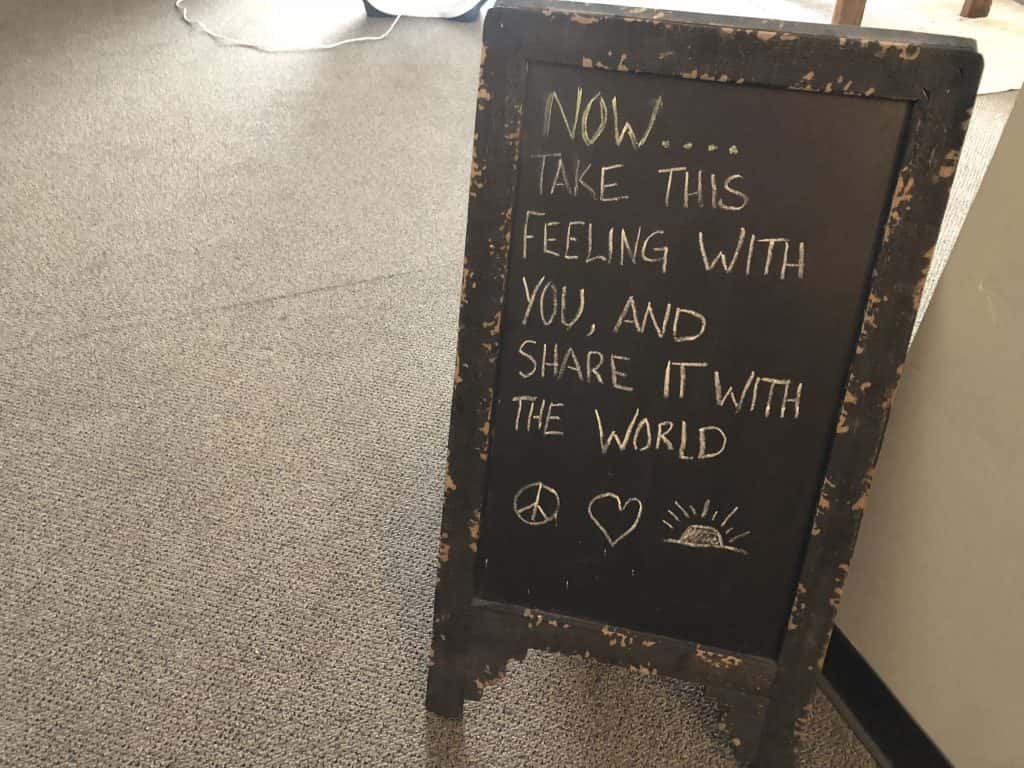 NOW....
TAKE THIS
FEELING WITH
YOU, AND
SHARE IT WITH
THE WORLD